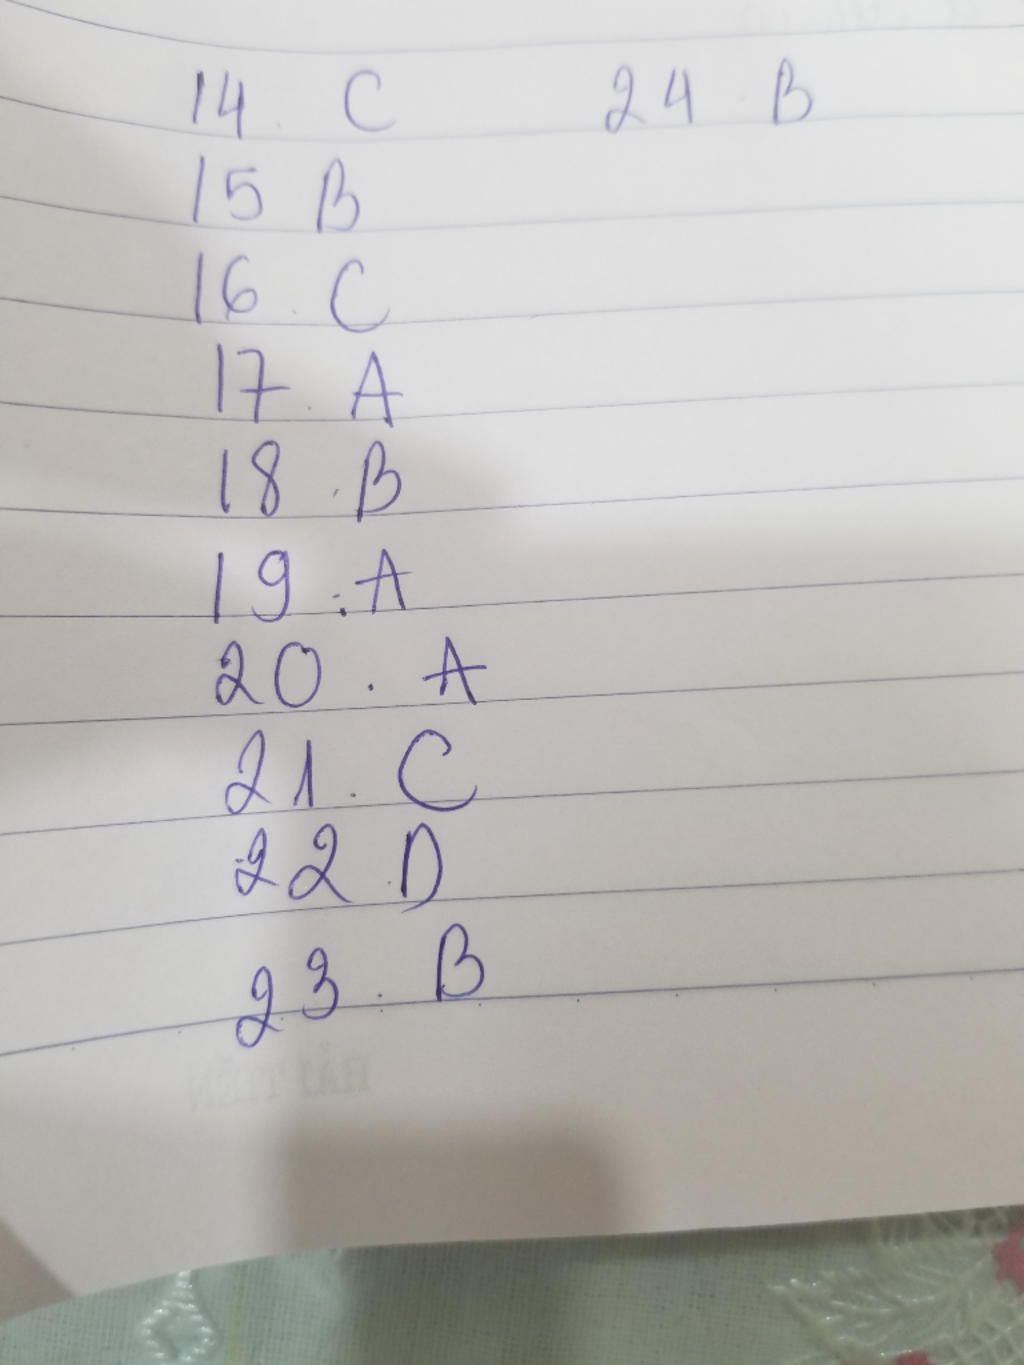 14. C 24. B
15 B
16. C
17. A
18. B
19. A
20. A
21. C
22. D
23. B
HẢI TIẾN